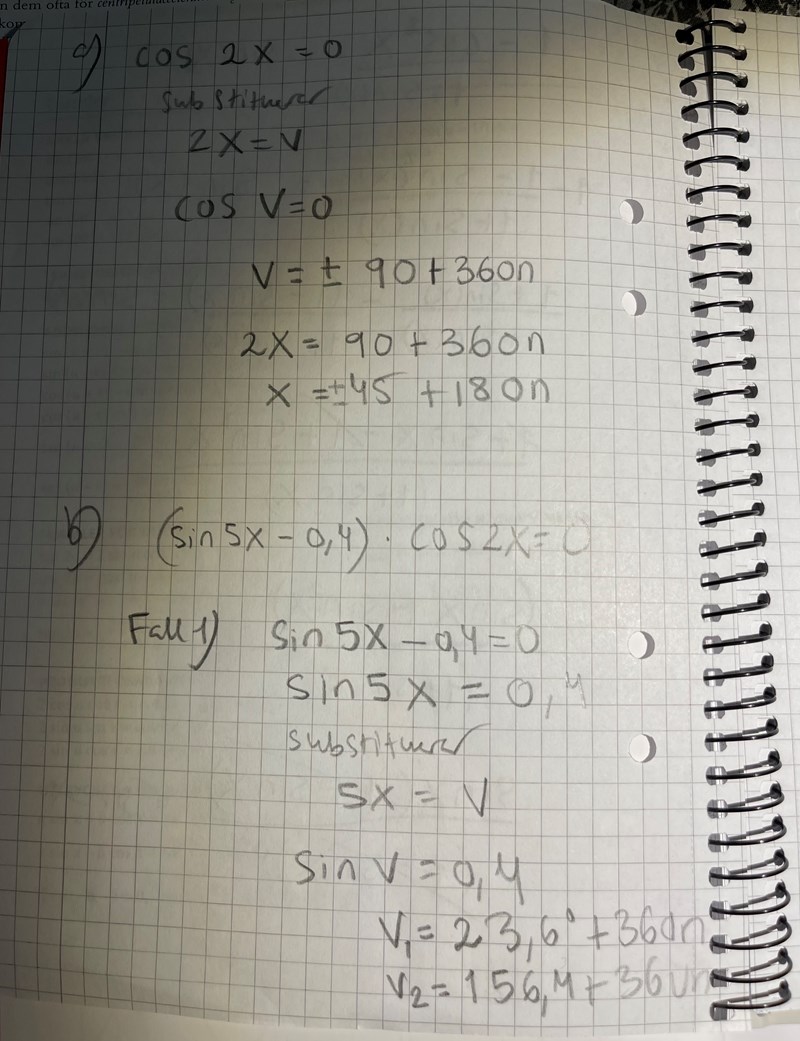 n dem ofta för
a) cos 2x = 0
substituerar
2x = v
cos v = 0
v = ± 90 + 360n
2x = 90 + 360n
x = ±45 + 180n
b) (sin 5x - 0,4) · cos 2x = 0
Fall 1) sin 5x - 0,4 = 0
sin 5x = 0,4
substituerar
5x = v
sin v = 0,4
v₁ = 23,6° + 360n
v₂ = 156,4 + 360n